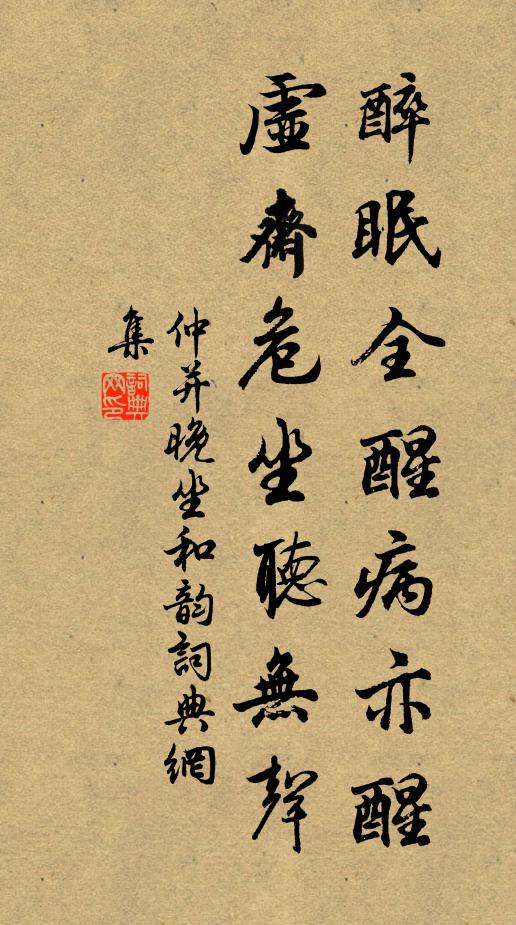 醉眠全醒病亦醒
虛齋危坐聽無聲
仲并晚坐和韵詞典網
集
詞典網印